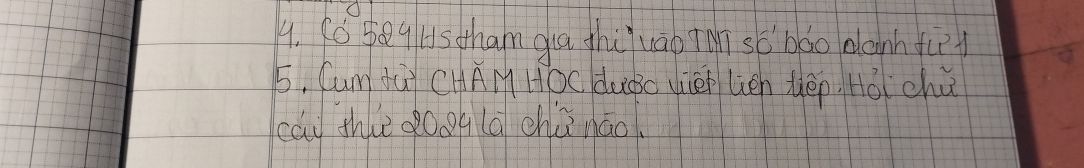 4. Có 524 HS tham gia thi vào TNT số báo danh từ 1
5. Cụm từ CHĂM HỌC được viết liên tiếp. Hỏi chữ
cái thứ 2024 là chữ nào.